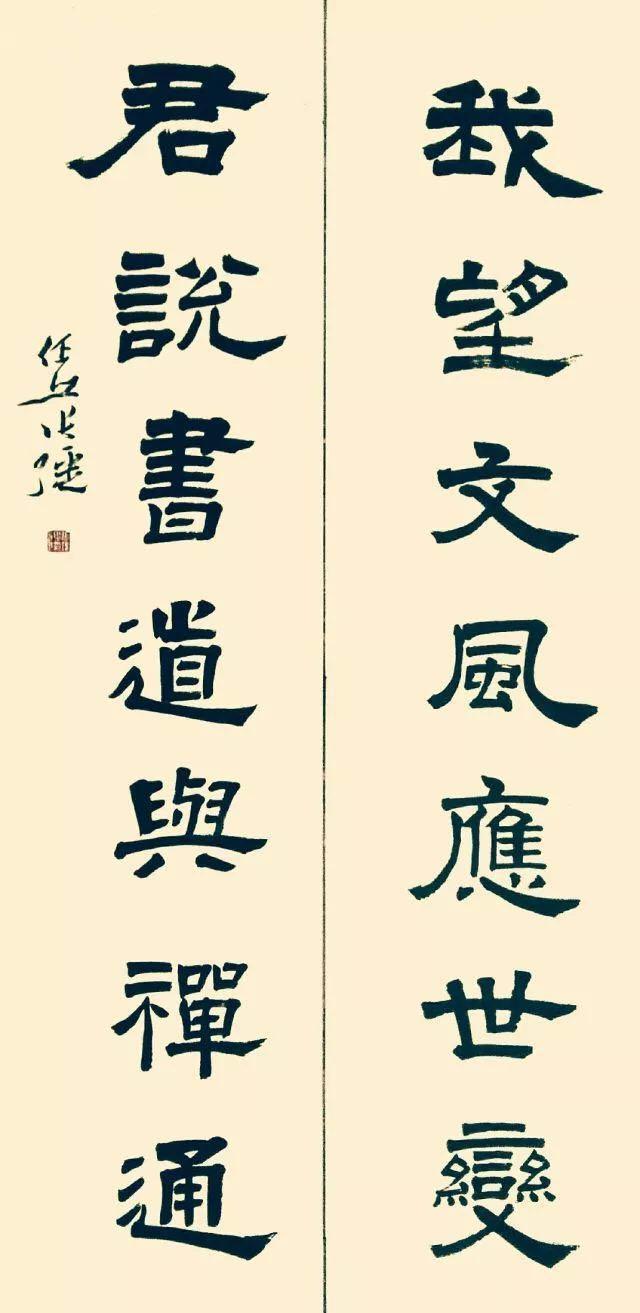 我望文風應世變
君說書道與禪通